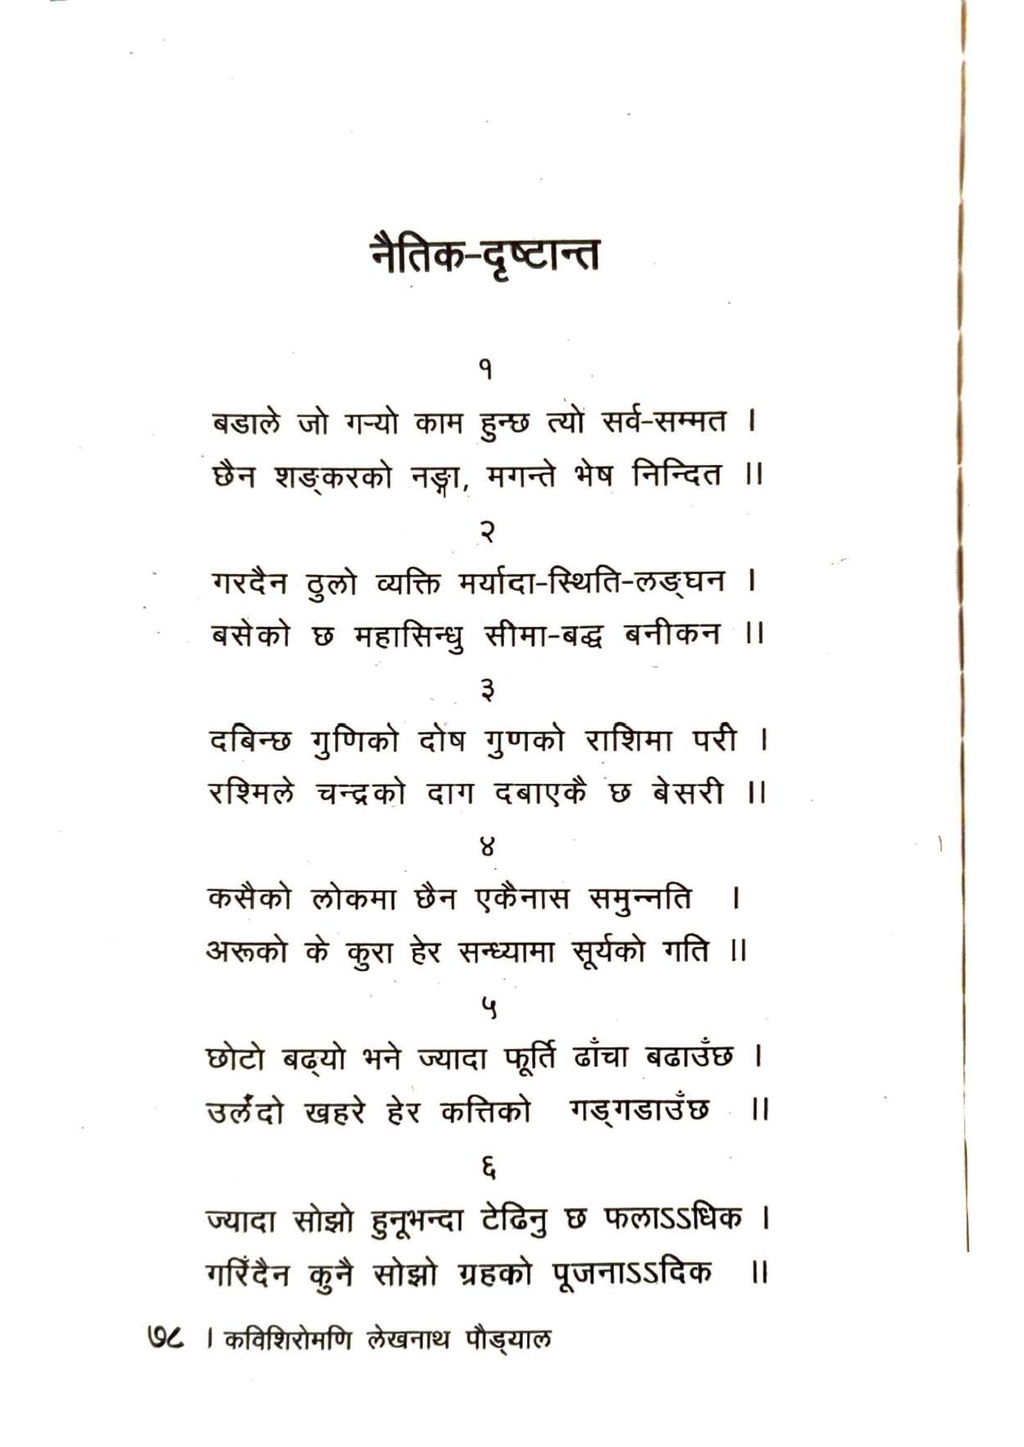 नैतिक-दृष्टान्त
१
बडाले जो गऱ्यो काम हुन्छ त्यो सर्व-सम्मत ।
छैन शङ्करको नङ्गा, मगन्ते भेष निन्दित ॥
२
गरदैन ठुलो व्यक्ति मर्यादा-स्थिति-लङ्घन ।
बसेको छ महासिन्धु सीमा-बद्ध बनीकन ॥
३
दबिन्छ गुणिको दोष गुणको राशिमा परी ।
रश्मिले चन्द्रको दाग दबाएकै छ बेसरी ॥
४
कसैको लोकमा छैन एकैनास समुन्नति ।
अरूको के कुरा हेर सन्ध्यामा सूर्यको गति ॥
५
छोटो बढ्यो भने ज्यादा फूर्ति ढाँचा बढाउँछ ।
उर्लँदो खहरे हेर कत्तिको गड्गडाउँछ ॥
६
ज्यादा सोझो हुनूभन्दा टेढिनु छ फलाऽऽधिक ।
गरिँदैन कुनै सोझो ग्रहको पूजनाऽऽदिक ॥
७८ । कविशिरोमणि लेखनाथ पौड्याल